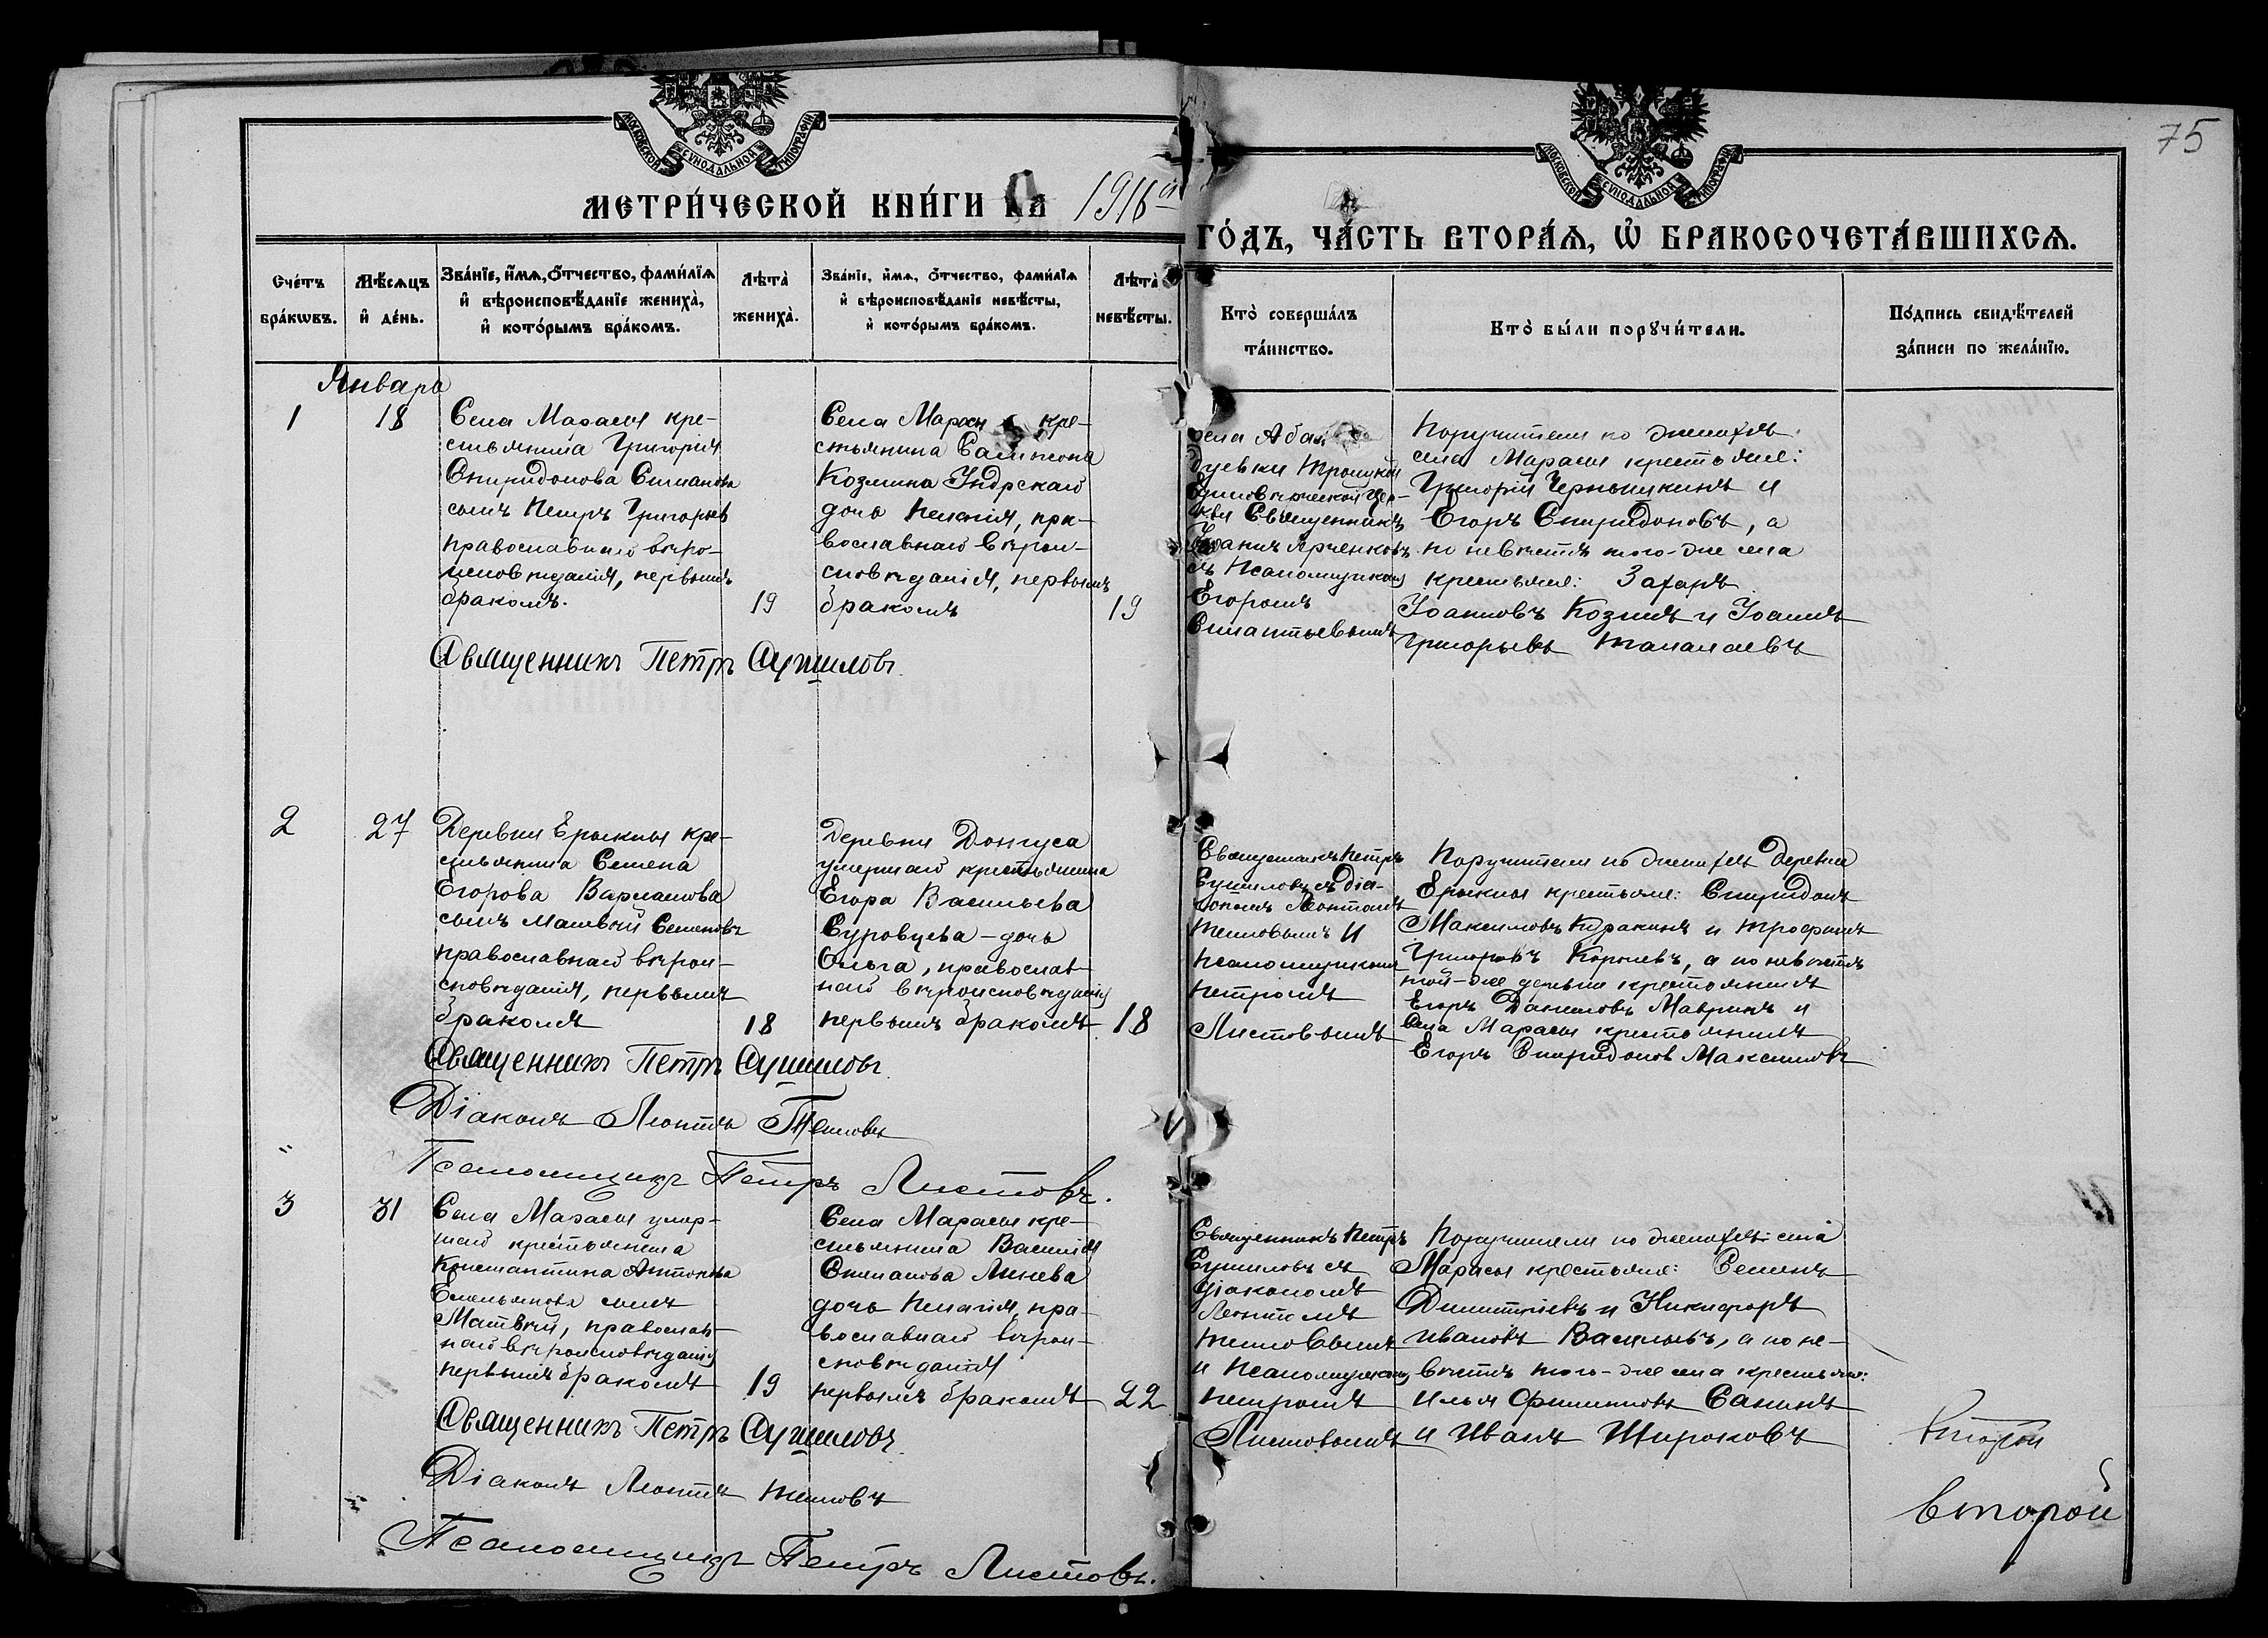 75
МОСКОВСКОЙ СѴНОДАЛЬНОЙ ТИПОГРАФІИ
МОСКОВСКОЙ СѴНОДАЛЬНОЙ ТИПОГРАФІИ
МЕТРИ́ЧЕСКОЙ КНИ́ГИ НА 1916 й
ГО́ДЪ, ЧА́СТЬ ВТОРА́Ѧ, Ѡ҆ БРАКОСОЧЕТА́ВШИХСѦ.
Сче́тъ бра́кѡвъ.
Мѣ́сѧцъ и҆ де́нь.
Зва́нїе, и҆́мѧ, ѻ҆́тчество, фами́лїѧ и҆ вѣроисповѣ́данїе жениха̀, и҆ кото́рымъ бра́комъ.
Лѣта̀ жениха̀.
Зва́нїе, и҆́мѧ, ѻ҆́тчество, фами́лїѧ и҆ вѣроисповѣ́данїе невѣ́сты, и҆ кото́рымъ бра́комъ.
Лѣта̀ невѣ́сты.
Кто̀ соверша́лъ та́инство.
Кто̀ бы́ли порꙋчи́тели.
По́дпись свидѣ́телей за́писи по жела́нїю.
Января
1
18
Села Марасы кре-
стьянина Григорія
Спиридонова Симанова
сынъ Петръ Григорьев
православнаго вѣро-
исповѣданія, первымъ
бракомъ.
19
Села Марасы кре-
стьянина Самсона
Козмина
дочь Пелагія, пра-
вославнаго вѣрои-
сповѣданія, первымъ
бракомъ
19
села
Троицкой
Единовѣрческой цер-
кви Священникъ
Іоаннъ
съ Псаломщикомъ
Егоромъ
Поручители по женихѣ
села Марасы крестьяне:
Григорій Чернышкинъ и
Егоръ Спиридоновъ, а
по невѣстѣ того-же села
крестьяне: Захаръ
Іоанновъ Козминъ и Іоаннъ
Григорьевъ Таналаевъ
Священникъ Петръ Сушиловъ.
2
27
Деревни Ерыклы кре-
стьянина Семена
Егорова Варламова
сынъ Матвѣй Семеновъ
православнаго вѣрои-
сповѣданія, первымъ
бракомъ
18
Деревни Донгуса
умершаго крестьянина
Егора Васильева
Суровцева - дочь
Ольга, православ-
наго вѣроисповѣданія
первымъ бракомъ
18
Священникъ Петръ
Сушиловъ съ діа-
кономъ Леонтіемъ
Тепловымъ и
псаломщикомъ
Петромъ
Листовымъ
Поручители по женихѣ деревни
Ерыклы крестьяне: Спиридонъ
Максимовъ Куракинъ и Трофимъ
Григорьевъ Королевъ, а по невѣстѣ
той-же деревни крестьянинъ
Егоръ Даниловъ Мавринъ и
Села Марасы крестьянинъ
Егоръ Спиридонов Максимовъ
Священникъ Петръ Сушиловъ.
Діаконъ Леонтій Тепловъ
Псаломщикъ Петръ Листовъ.
3
31
Села Марасы умер-
шаго крестьянина
Константина Антонова
Емельянова сынъ
Матвѣй, православ-
наго вѣроисповѣданія
первымъ бракомъ
19
Села Марасы кре-
стьянина Василія
Степанова Линева
дочь Пелагія, пра-
вославнаго вѣрои-
сповѣданія
первымъ бракомъ
22
Священникъ Петръ
Сушиловъ съ
діакономъ
Леонтіемъ
Тепловымъ
и Псаломщикомъ
Петромъ
Листовымъ
Поручители по женихѣ: села
Марасы крестьяне: Семенъ
Димитріевъ и Никифоръ
Ивановъ Васильевъ, а по не-
вѣстѣ того-же села крестьяне:
Илья Филипповъ Санинъ
и Иванъ Широковъ
Священникъ Петръ Сушиловъ.
Діаконъ Леонтій Тепловъ
Псаломщикъ Петръ Листовъ.
второй
второй